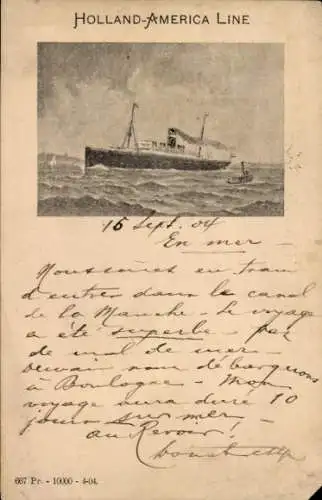 HOLLAND-AMERICA LINE
15 Sept. 04
En mer -
Nous sommes en train
d'entrer dans le canal
de la Manche - Le voyage
a été superbe - pas
de mal de mer -
Demain nous débarquons
à Boulogne - Mon
voyage aura duré 10
jours sur mer -
au Revoir!
667 Pr. - 10000 - 4-04.